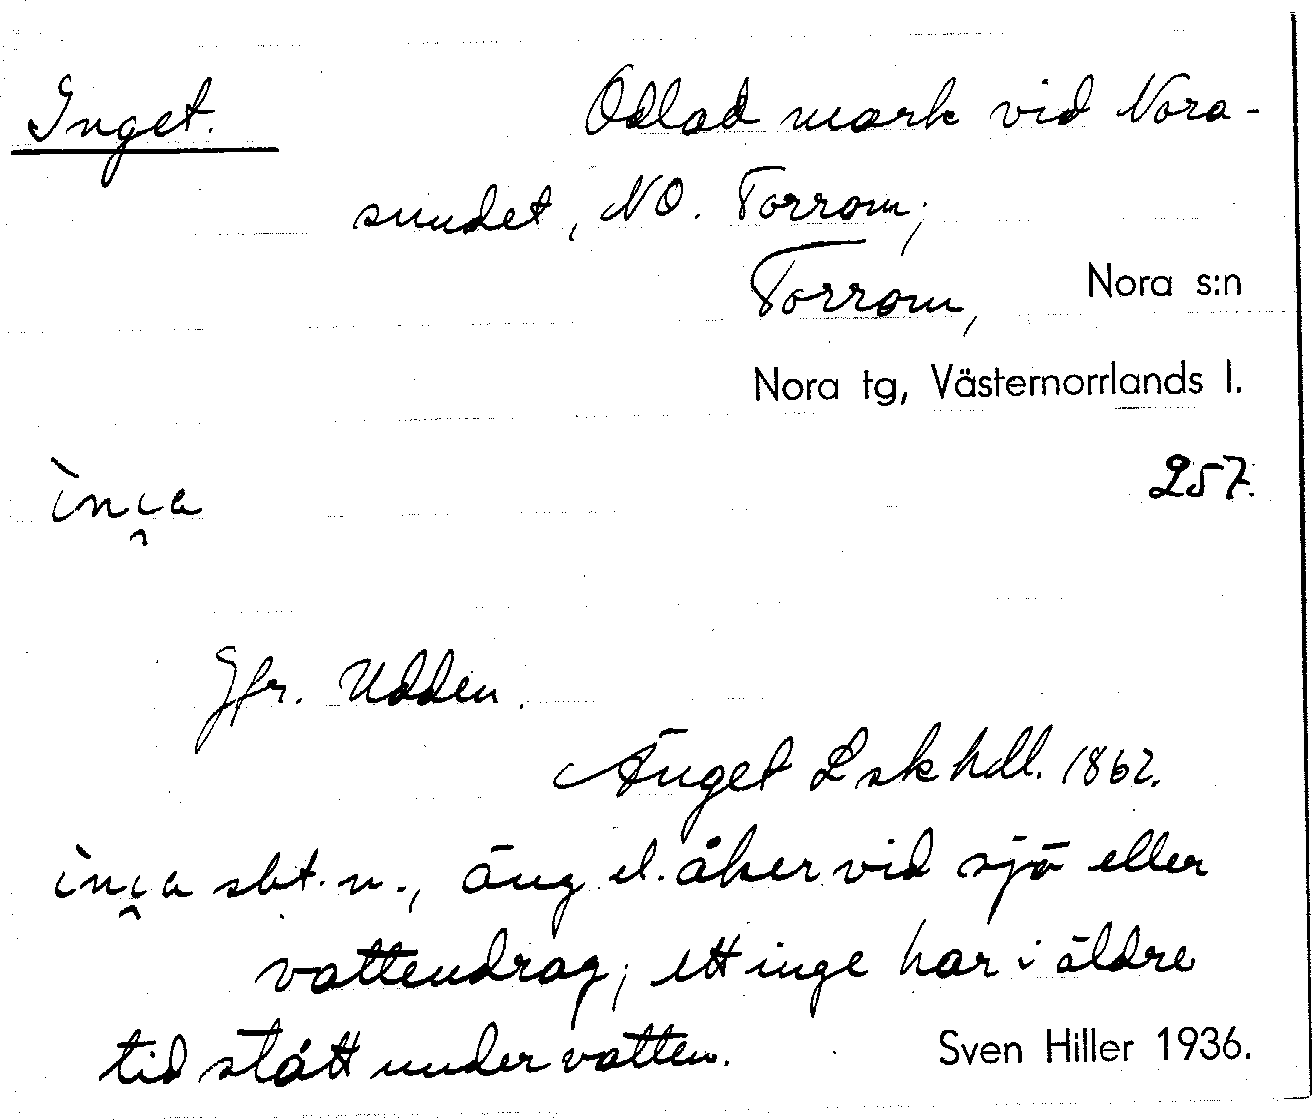 Inget. Odlad mark vid Nora-
sundet, NO. Torrom;
Torrom, Nora s:n
Nora tg, Västernorrlands l.
257.
Jfr. Udden.
Änget Lskhdl. 1862.
sbt. n., äng el. åker vid sjö eller
vattendrag; ett inge har i äldre
tid stått under vatten. Sven Hiller 1936.